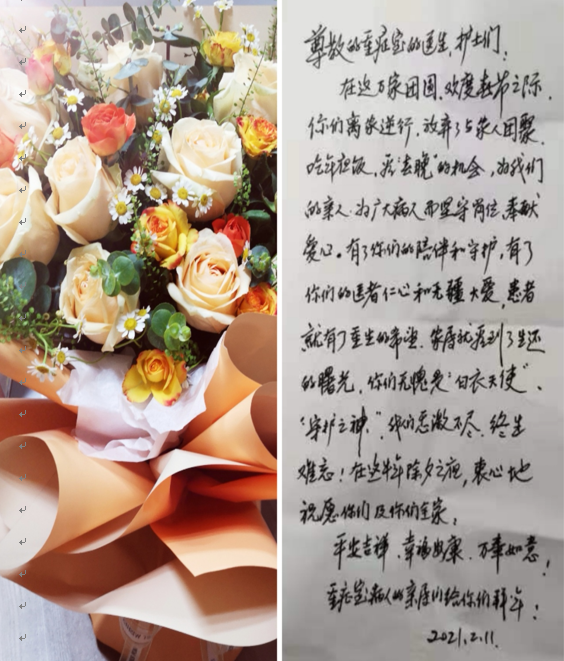 尊敬的重症室的医生、护士们：
在这万家团圆、欢度春节之际，
你们离家逆行，放弃了与家人团聚、
吃年夜饭、看"春晚"的机会，为我们
的亲人、为广大病人而坚守岗位、奉献
爱心。有了你们的陪伴和守护，有了
你们的医者仁心和无疆大爱，患者
就有了重生的希望，家属就看到了生还
的曙光，你们无愧是"白衣天使"、
"守护之神"，我们感激不尽、终生
难忘！在这牛年除夕之夜，衷心地
祝愿你们及你们全家，
平安吉祥、幸福安康、万事如意！
重症室病人的亲属们给你们拜年！
2021.2.11.